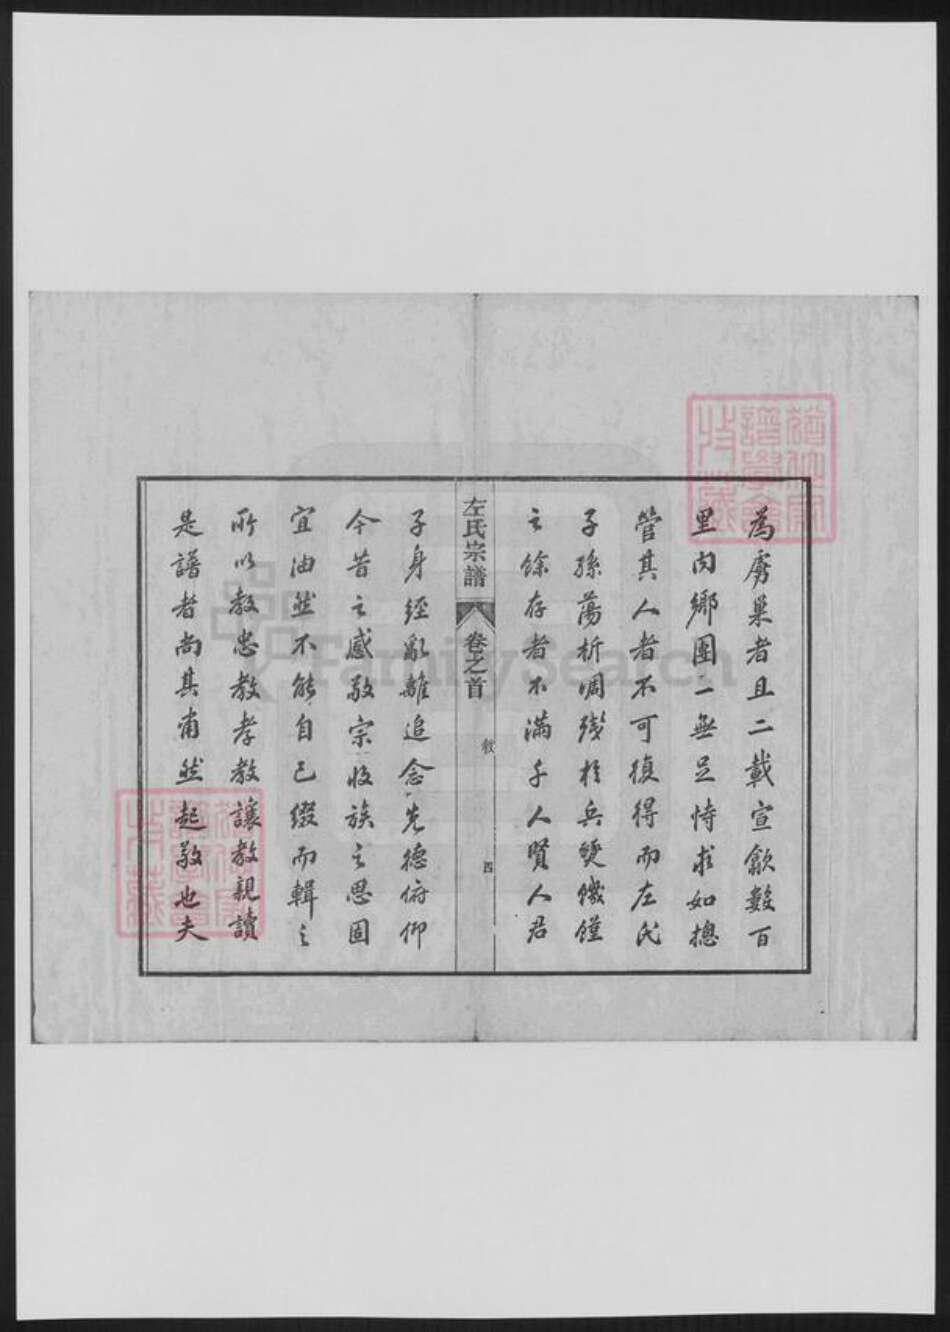 為虜巢者且二載宣歙數百
里內鄉團一無足恃求如摠
管其人者不可復得而左氏
子孫蕩析凋殘於兵燹饑饉
之餘存者不滿千人賢人君
左氏宗譜
卷之首
敘
四
子身經亂離追念先德俯仰
今昔之感敬宗收族之思固
宜油然不能自已綴而輯之
所以教忠教孝教讓教親讀
是譜者尚其肅然起敬也夫
FamilySearch